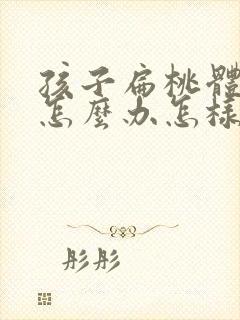 孩子扁桃體
怎麼办怎樣
彤彤